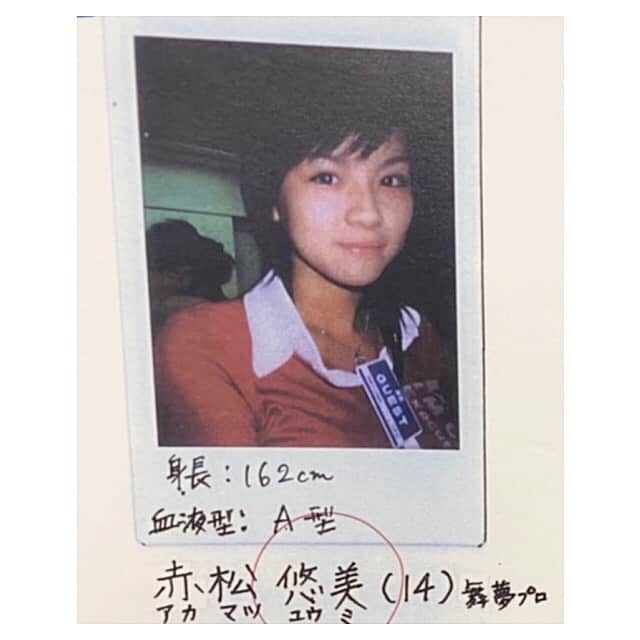 GUEST
身長:162cm
血液型:A型
赤松 悠美(14)舞夢プロ
アカ マツ ユウ ミ